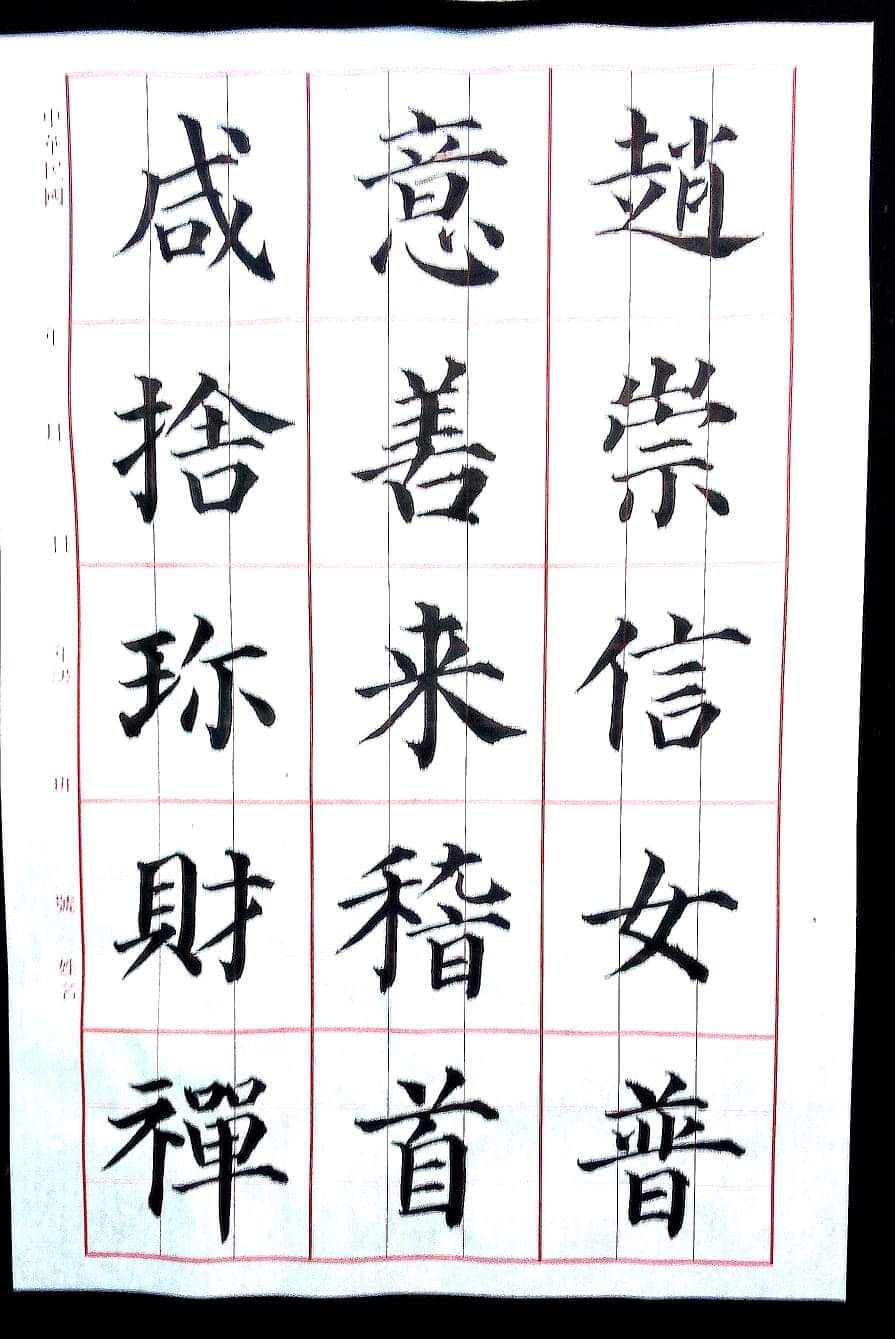 趙崇信女普
意善来稽首
咸捨珎財禪
中華民國 年 月 日 年級 班 號 姓名